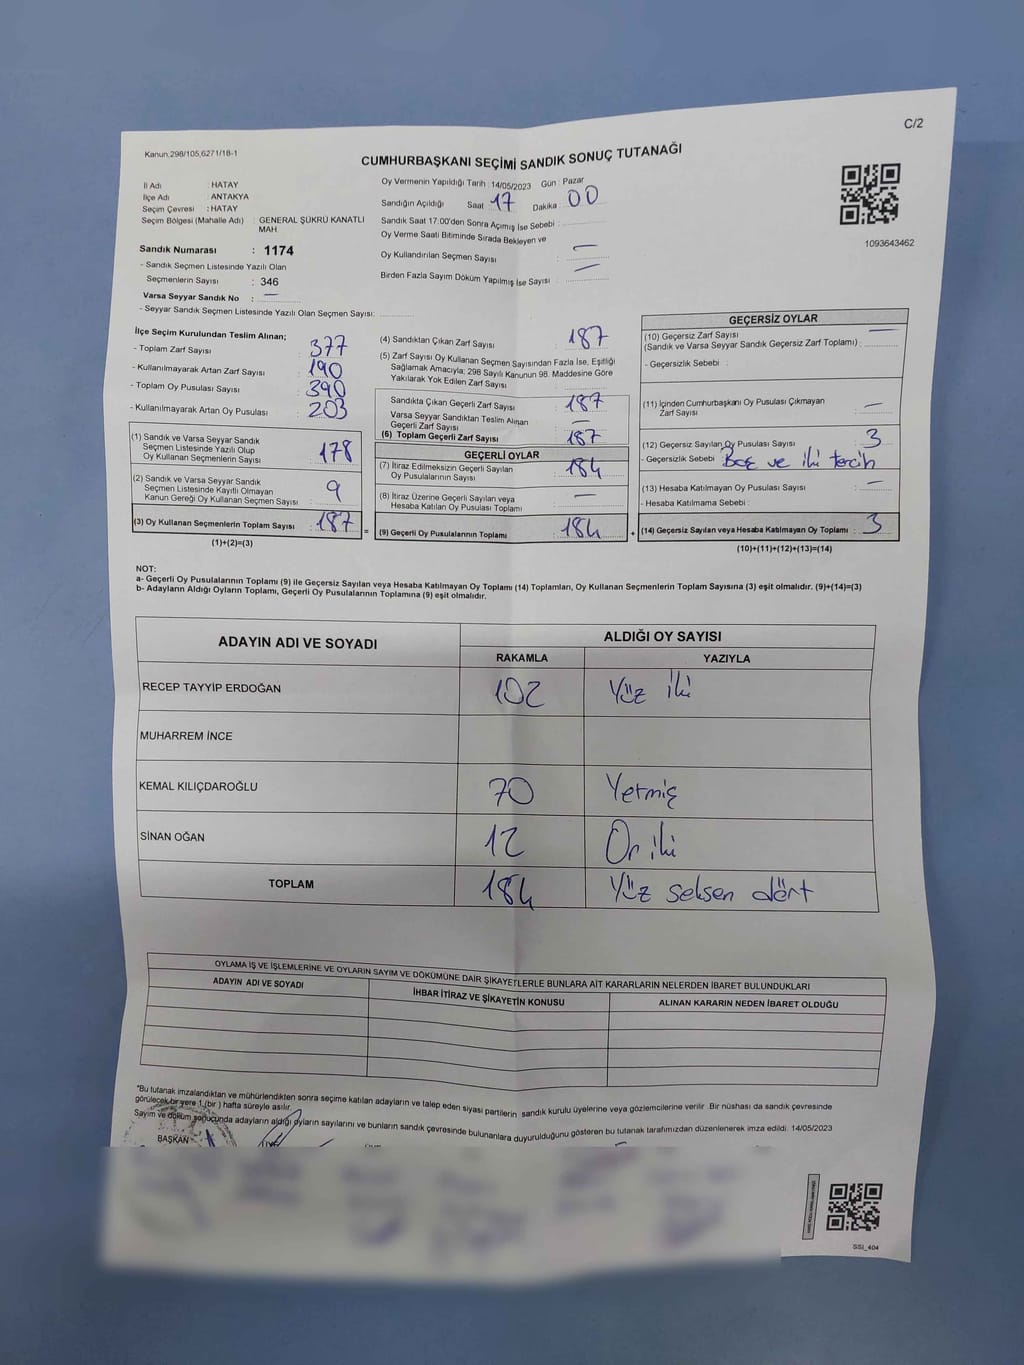 C/2
Kanun.298/105,6271/18-1
CUMHURBAŞKANI SEÇİMİ SANDIK SONUÇ TUTANAĞI
İl Adı : HATAY
İlçe Adı : ANTAKYA
Seçim Çevresi : HATAY
Seçim Bölgesi (Mahalle Adı) : GENERAL ŞÜKRÜ KANATLI
MAH
Sandık Numarası : 1174
- Sandık Seçmen Listesinde Yazılı Olan
Seçmenlerin Sayısı : 346
Varsa Seyyar Sandık No : —
- Seyyar Sandık Seçmen Listesinde Yazılı Olan Seçmen Sayısı:
Oy Vermenin Yapıldığı Tarih : 14/05/2023 Gün : Pazar
Sandığın Açıldığı Saat 17 Dakika 00
Sandık Saat 17:00'den Sonra Açımış İse Sebebi :
Oy Verme Saati Bitiminde Sırada Bekleyen ve
Oy Kullandırılan Seçmen Sayısı : —
Birden Fazla Sayım Döküm Yapılmış İse Sayısı : —
1093643462
İlçe Seçim Kurulundan Teslim Alınan;
- Toplam Zarf Sayısı : 377
- Kullanılmayarak Artan Zarf Sayısı : 190
- Toplam Oy Pusulası Sayısı : 390
- Kullanılmayarak Artan Oy Pusulası : 203
(1) Sandık ve Varsa Seyyar Sandık
Seçmen Listesinde Yazılı Olup
Oy Kullanan Seçmenlerin Sayısı : 178
(2) Sandık ve Varsa Seyyar Sandık
Seçmen Listesinde Kayıtlı Olmayan
Kanun Gereği Oy Kullanan Seçmen Sayısı : 9
(3) Oy Kullanan Seçmenlerin Toplam Sayısı : 187 =
(1)+(2)=(3)
(4) Sandıktan Çıkan Zarf Sayısı : 187
(5) Zarf Sayısı Oy Kullanan Seçmen Sayısından Fazla İse, Eşitliği
Sağlamak Amacıyla; 298 Sayılı Kanunun 98. Maddesine Göre
Yakılarak Yok Edilen Zarf Sayısı :
Sandıkta Çıkan Geçerli Zarf Sayısı : 187
Varsa Seyyar Sandıktan Teslim Alınan
Geçerli Zarf Sayısı : —
(6) Toplam Geçerli Zarf Sayısı : 187
GEÇERLİ OYLAR
(7) İtiraz Edilmeksizin Geçerli Sayılan
Oy Pusulalarının Sayısı : 184
(8) İtiraz Üzerine Geçerli Sayılan veya
Hesaba Katılan Oy Pusulası Toplamı : —
(9) Geçerli Oy Pusulalarının Toplamı : 184 +
GEÇERSİZ OYLAR
(10) Geçersiz Zarf Sayısı —
(Sandık ve Varsa Seyyar Sandık Geçersiz Zarf Toplamı) :
- Geçersizlik Sebebi :
(11) İçinden Cumhurbaşkanı Oy Pusulası Çıkmayan
Zarf Sayısı : —
(12) Geçersiz Sayılan Oy Pusulası Sayısı : 3
- Geçersizlik Sebebi : Boş ve iki tercih
(13) Hesaba Katılmayan Oy Pusulası Sayısı : —
- Hesaba Katılmama Sebebi :
(14) Geçersiz Sayılan veya Hesaba Katılmayan Oy Toplamı : 3
(10)+(11)+(12)+(13)=(14)
NOT:
a- Geçerli Oy Pusulalarının Toplamı (9) ile Geçersiz Sayılan veya Hesaba Katılmayan Oy Toplamı (14) Toplamları, Oy Kullanan Seçmenlerin Toplam Sayısına (3) eşit olmalıdır. (9)+(14)=(3)
b- Adayların Aldığı Oyların Toplamı, Geçerli Oy Pusulalarının Toplamına (9) eşit olmalıdır.
ADAYIN ADI VE SOYADI ALDIĞI OY SAYISI
RAKAMLA YAZIYLA
RECEP TAYYİP ERDOĞAN 102 Yüz iki
MUHARREM İNCE
KEMAL KILIÇDAROĞLU 70 Yetmiş
SİNAN OĞAN 12 On iki
TOPLAM 184 Yüz seksen dört
OYLAMA İŞ VE İŞLEMLERİNE VE OYLARIN SAYIM VE DÖKÜMÜNE DAİR ŞİKAYETLERLE BUNLARA AİT KARARLARIN NELERDEN İBARET BULUNDUKLARI
ADAYIN ADI VE SOYADI İHBAR İTİRAZ VE ŞİKAYETİN KONUSU ALINAN KARARIN NEDEN İBARET OLDUĞU
*Bu tutanak imzalandıktan ve mühürlendikten sonra seçime katılan adayların ve talep eden siyasi partilerin sandık kurulu üyelerine veya gözlemcilerine verilir. Bir nüshası da sandık çevresinde
görülecek bir yere 1 (bir) hafta süreyle asılır.
Sayım ve döküm sonucunda adayların aldığı oyların sayılarını ve bunların sandık çevresinde bulunanlara duyurulduğunu gösteren bu tutanak tarafımızdan düzenlenerek imza edildi. 14/05/2023
BAŞKAN
SSI_404